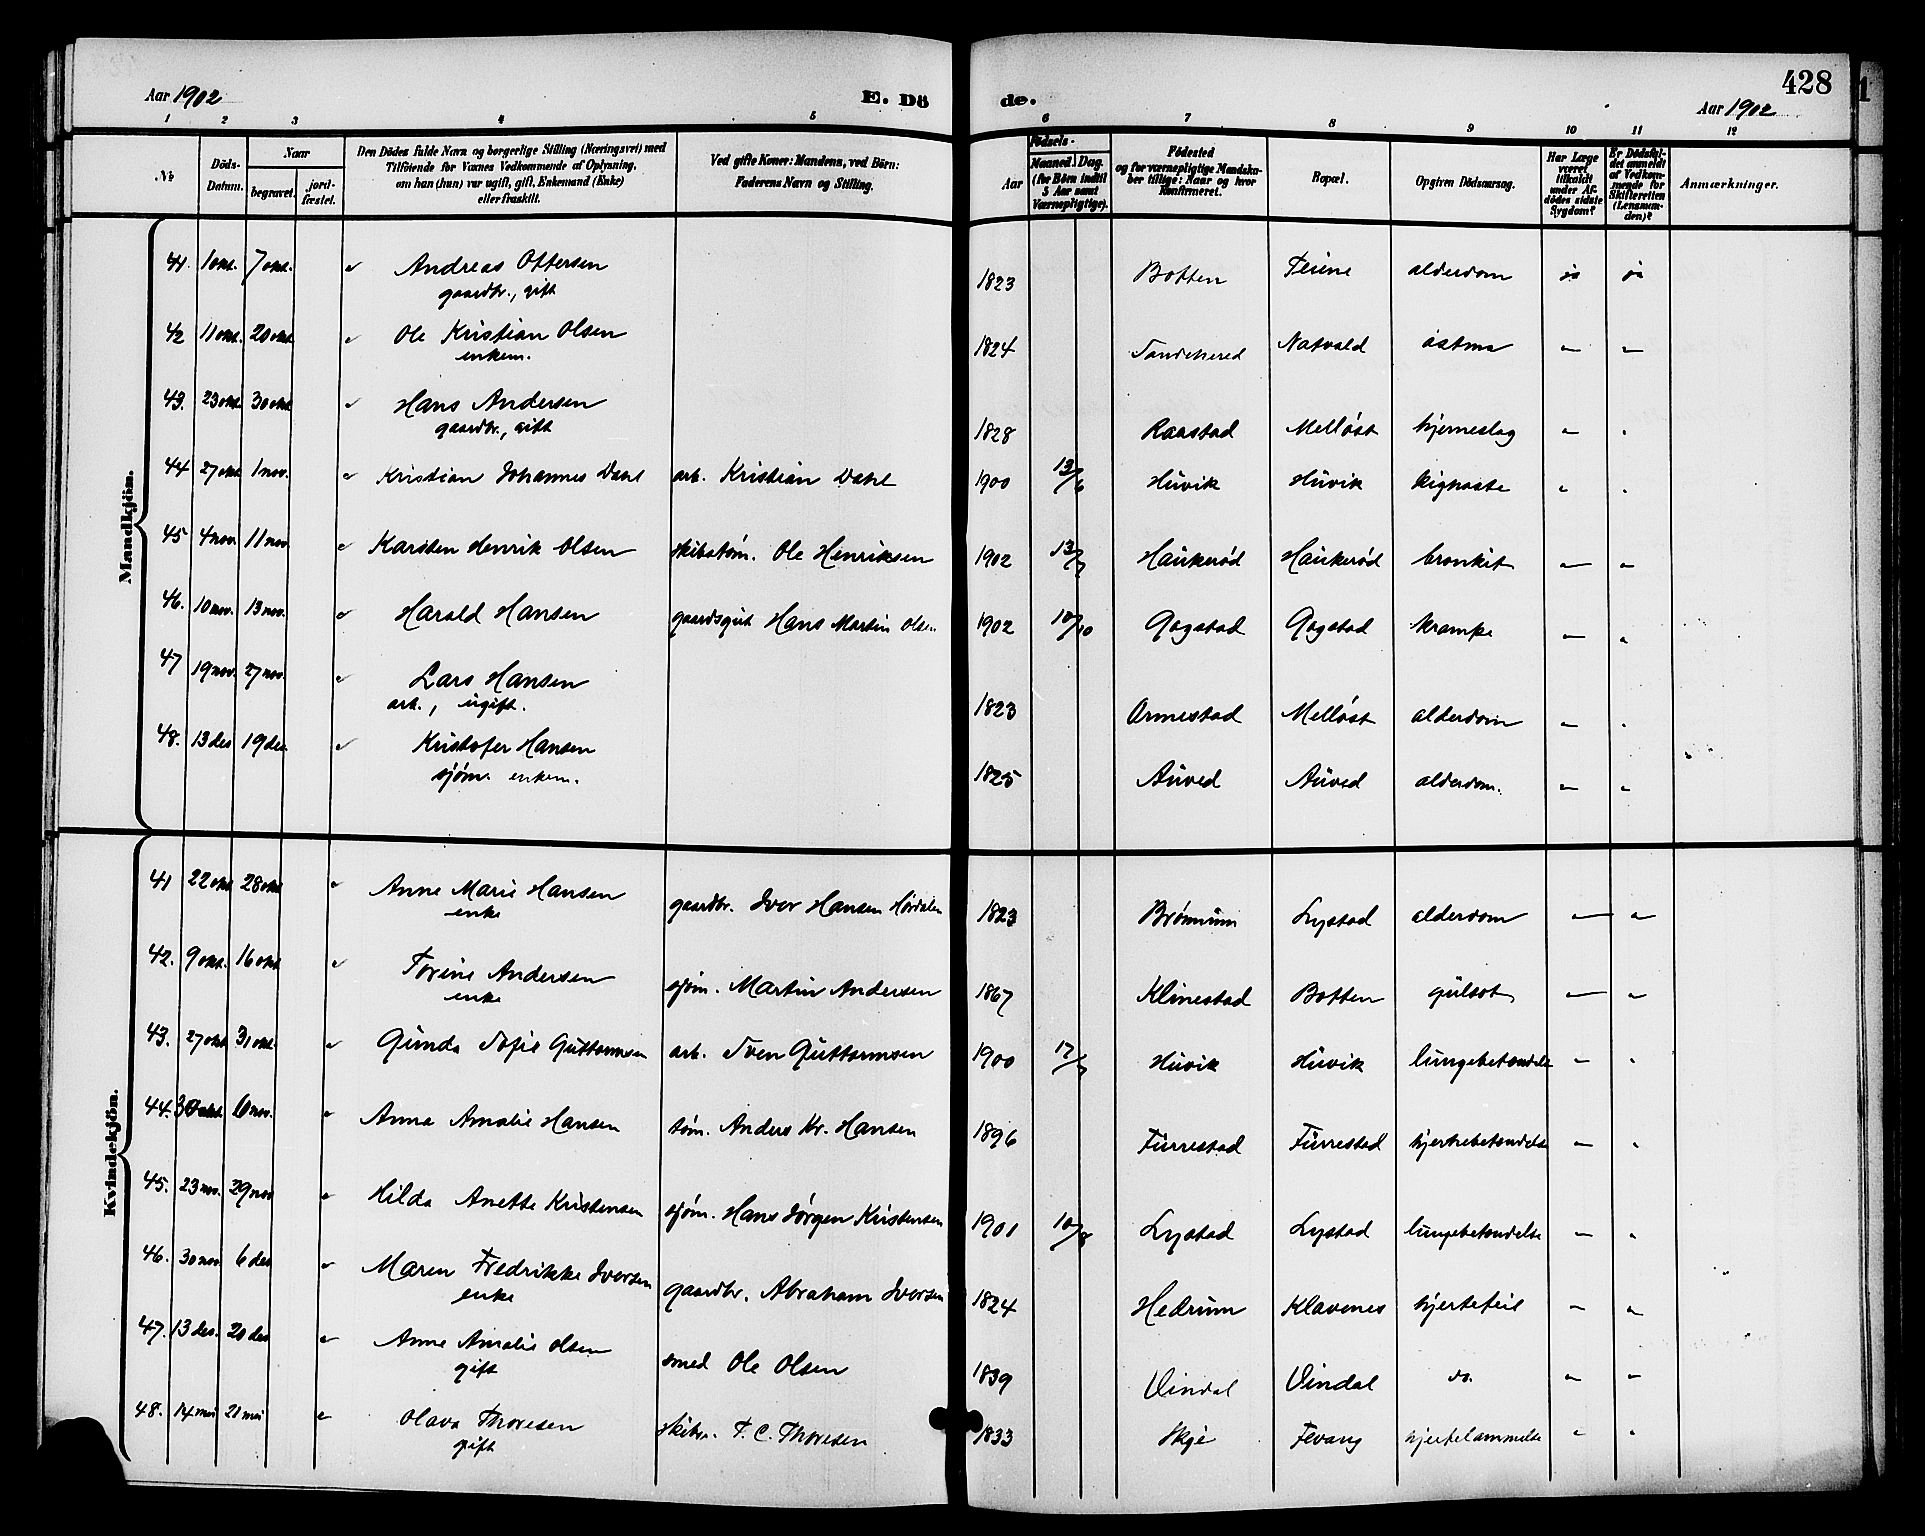 428
Aar 1902 E. Dö de. Aar 1902
1 2 3 4 5 6 7 8 9 10 11 12
№
Döds-Datum.
Naar
begravet.
jord-fæstet.
Den Dödes fulde Navn og borgerlige Stilling (Næringsvei) med
Tilföiende for Voxnes Vedkommende af Oplysning,
om han (hun) var ugift, gift, Enkemand (Enke)
eller fraskilt.
Ved gifte Koner: Mandens, ved Börn:
Faderens Navn og Stilling.
Fødsels-
Aar
Maaned. Dag.
(for Börn indtil
5 Aar samt
Værnepligtige).
Födested
og for værnepligtige Mandska-
ber tillige: Naar og hvor
Konfirmeret.
Bopæl.
Opgiven Dödsaarsag.
Har Læge
været
tilkaldt
under Af-
dödes sidste
Sygdom?
Er Dödsfal-
det anmeldt
af Vedkom-
mende for
Skifteretten
(Lensman-
den)?
Anmærkninger.
Mandkjön.
41. 1 okt. 7 okt. Andreas Ottersen 1823 Botten Feine alderdom ja ja
gaardbr., gift
42 11 okt. 20 okt. Ole Kristian Olsen 1824 Sandeherred Natvald astma " "
enkem.
43. 23 okt. 30 okt. Hans Andersen 1828 Raastad Melløst hjerneslag " "
gaardbr., gift
44 27 okt. 1 nov. Kristian Johannes Dahl arb. Kristian Dahl 1900 13/6 Huvik Huvik kighoste " "
45 4 nov. 11 nov. Karsten Henrik Olsen skibstøm. Ole Henriksen 1902 13/7 Haukerød Haukerød bronkit " "
46. 10 nov. 13 nov. Harald Hansen gaardsgut Hans Martin Olsen 1902 10/10 Gogstad Gogstad krampe " "
47 19 nov. 27 nov. Lars Hansen 1823 Ormestad Melløst alderdom " "
arb., ugift.
48. 13 des 19 des. Kristofer Hansen 1825 Auved Auved alderdom. " "
sjøm. enkem.
Kvindekjön.
41 22 okt 28 okt Anne Marie Hansen gaardbr. Iver Hansen Hørdalen 1823 Brønnum Lystad alderdom " "
enke
42. 9 okt. 16 okt Torine Andersen sjøm. Martin Andersen 1867 Klinestad Botten gulsot " "
enke
43. 27 okt 31 okt. Gunda Sofie Guttormsen arb. Sven Guttormsen 1900 17/7 Huvik Huvik lungebetændelse " "
44. 30 okt. 6 nov. Anna Amalie Hansen tøm. Anders Kr. Hansen 1896 Furrestad Furrestad hjertebetændelse " "
45. 23 nov. 29 nov Hilda Anette Kristensen sjøm. Hans Jørgen Kristensen 1901 10/8 Lystad Lystad lungebetændelse " "
46. 30 nov 6 des Maren Fredrikke Iversen gaardbr. Abraham Iversen 1824 Hedrum Klavenes hjertefeil " "
enke
47. 13 des. 20 des Anne Amalie Olsen smed Ole Olsen 1839 Vindal Vindal do. " "
gift
48. 14 mai 21 mai Olava Thoresen skibsr. T. C. Thoresen 1833 Skje Fevang hjertelammelse " "
gift